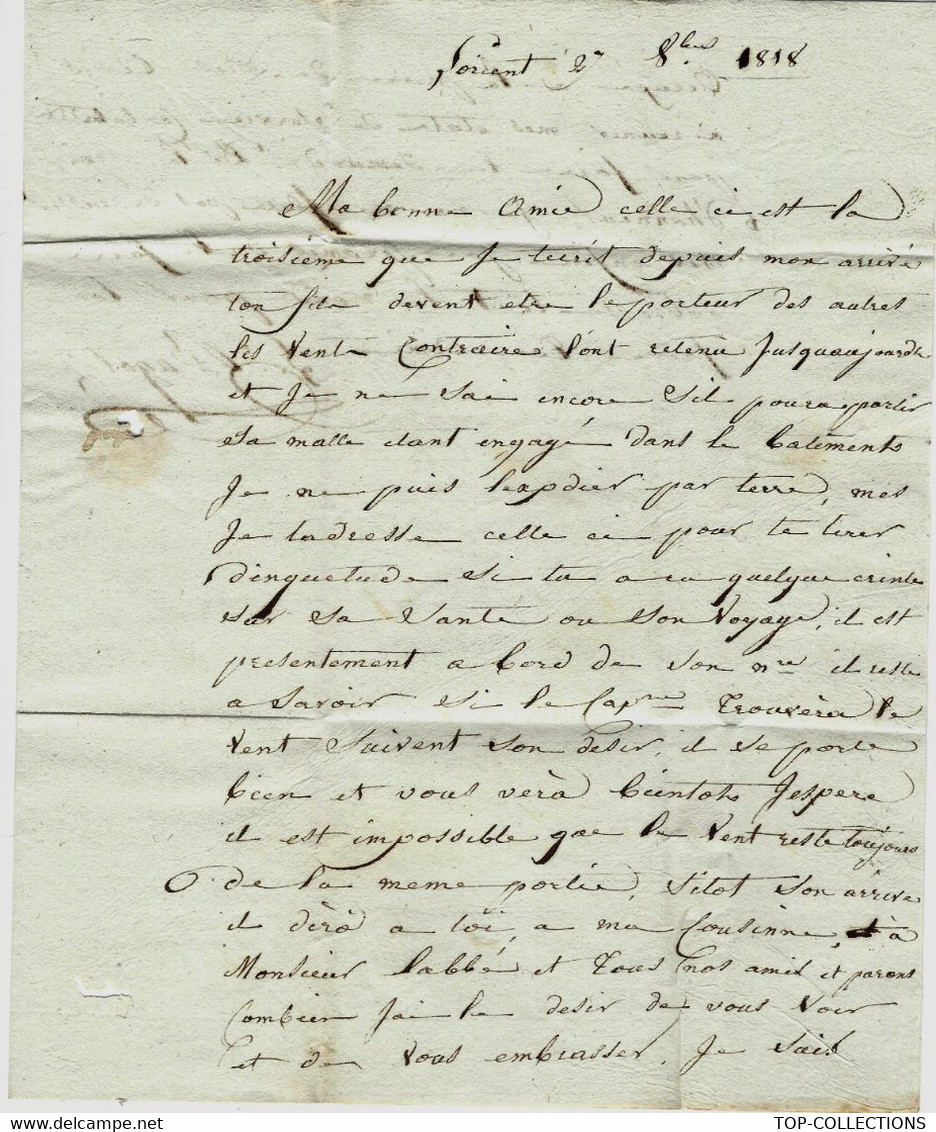 Lorient 27 8bre 1818
Ma bonne Amie celle ci est la
troisieme que Je técrit depuis mon arrivé
ton fils devent etre le porteur des autres
les Vent Contraire lont retenu Jusquaujourdh
et Je ne sai encore Sil poura partir
sa malle étant engagé dans le batiments
Je ne puis lexpdier par terre, mes
Je tadresse celle ci pour te tirer
dinquetude si tu a eu quelque crinte
sur sa Santé ou son Voyage, il est
presentement a bord de son nre il reste
a savoir si le Capne Trouvèra le
Vent Suivent son desir, il se porte
bien et vous verà bientots Jespere
il est impossible que le Vent reste toujours
de la meme partie, sitot son arrivé
il dirà a toi, a ma Cousinne, à
Monsieur labbé et Tous nos amis et parens
Combien Jai le desir de vous voir
et de Vous embrasser. Je suis
TOP-COLLECTIONS